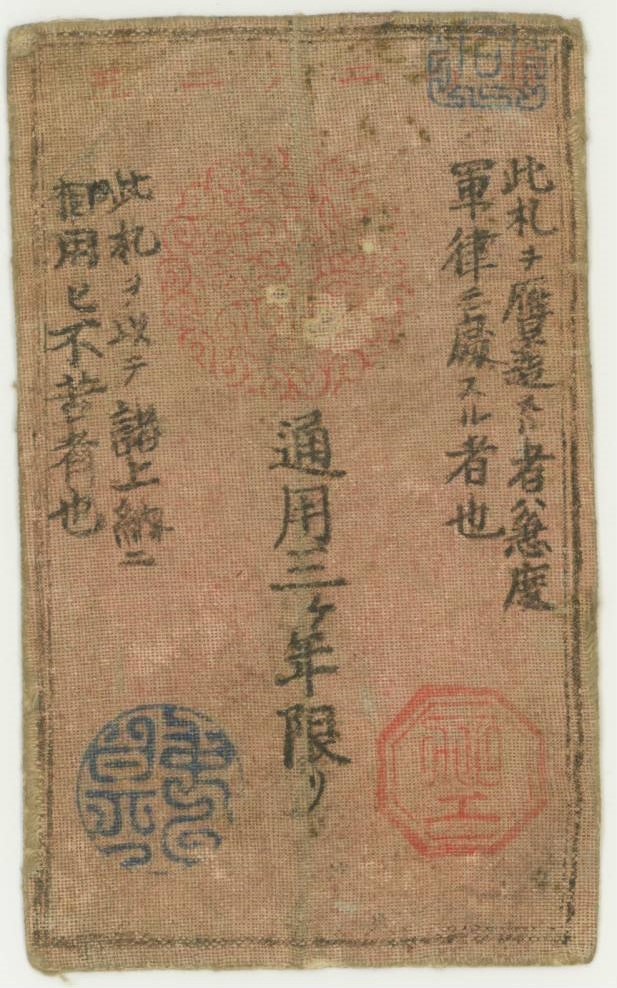 此札ヲ贋造スル者ハ急度
軍律ニ處スル者也
通用三ヶ年限リ
此札ヲ以テ諸上納ニ
相用ヒ不苦者也